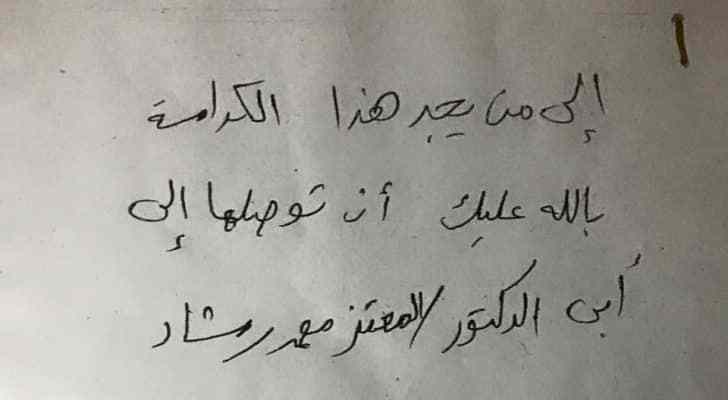 ١
إلى من يجد هذا الكرامة
بالله عليك أن توصلها إلى
أبي الدكتور/المعتز محمد رشاد